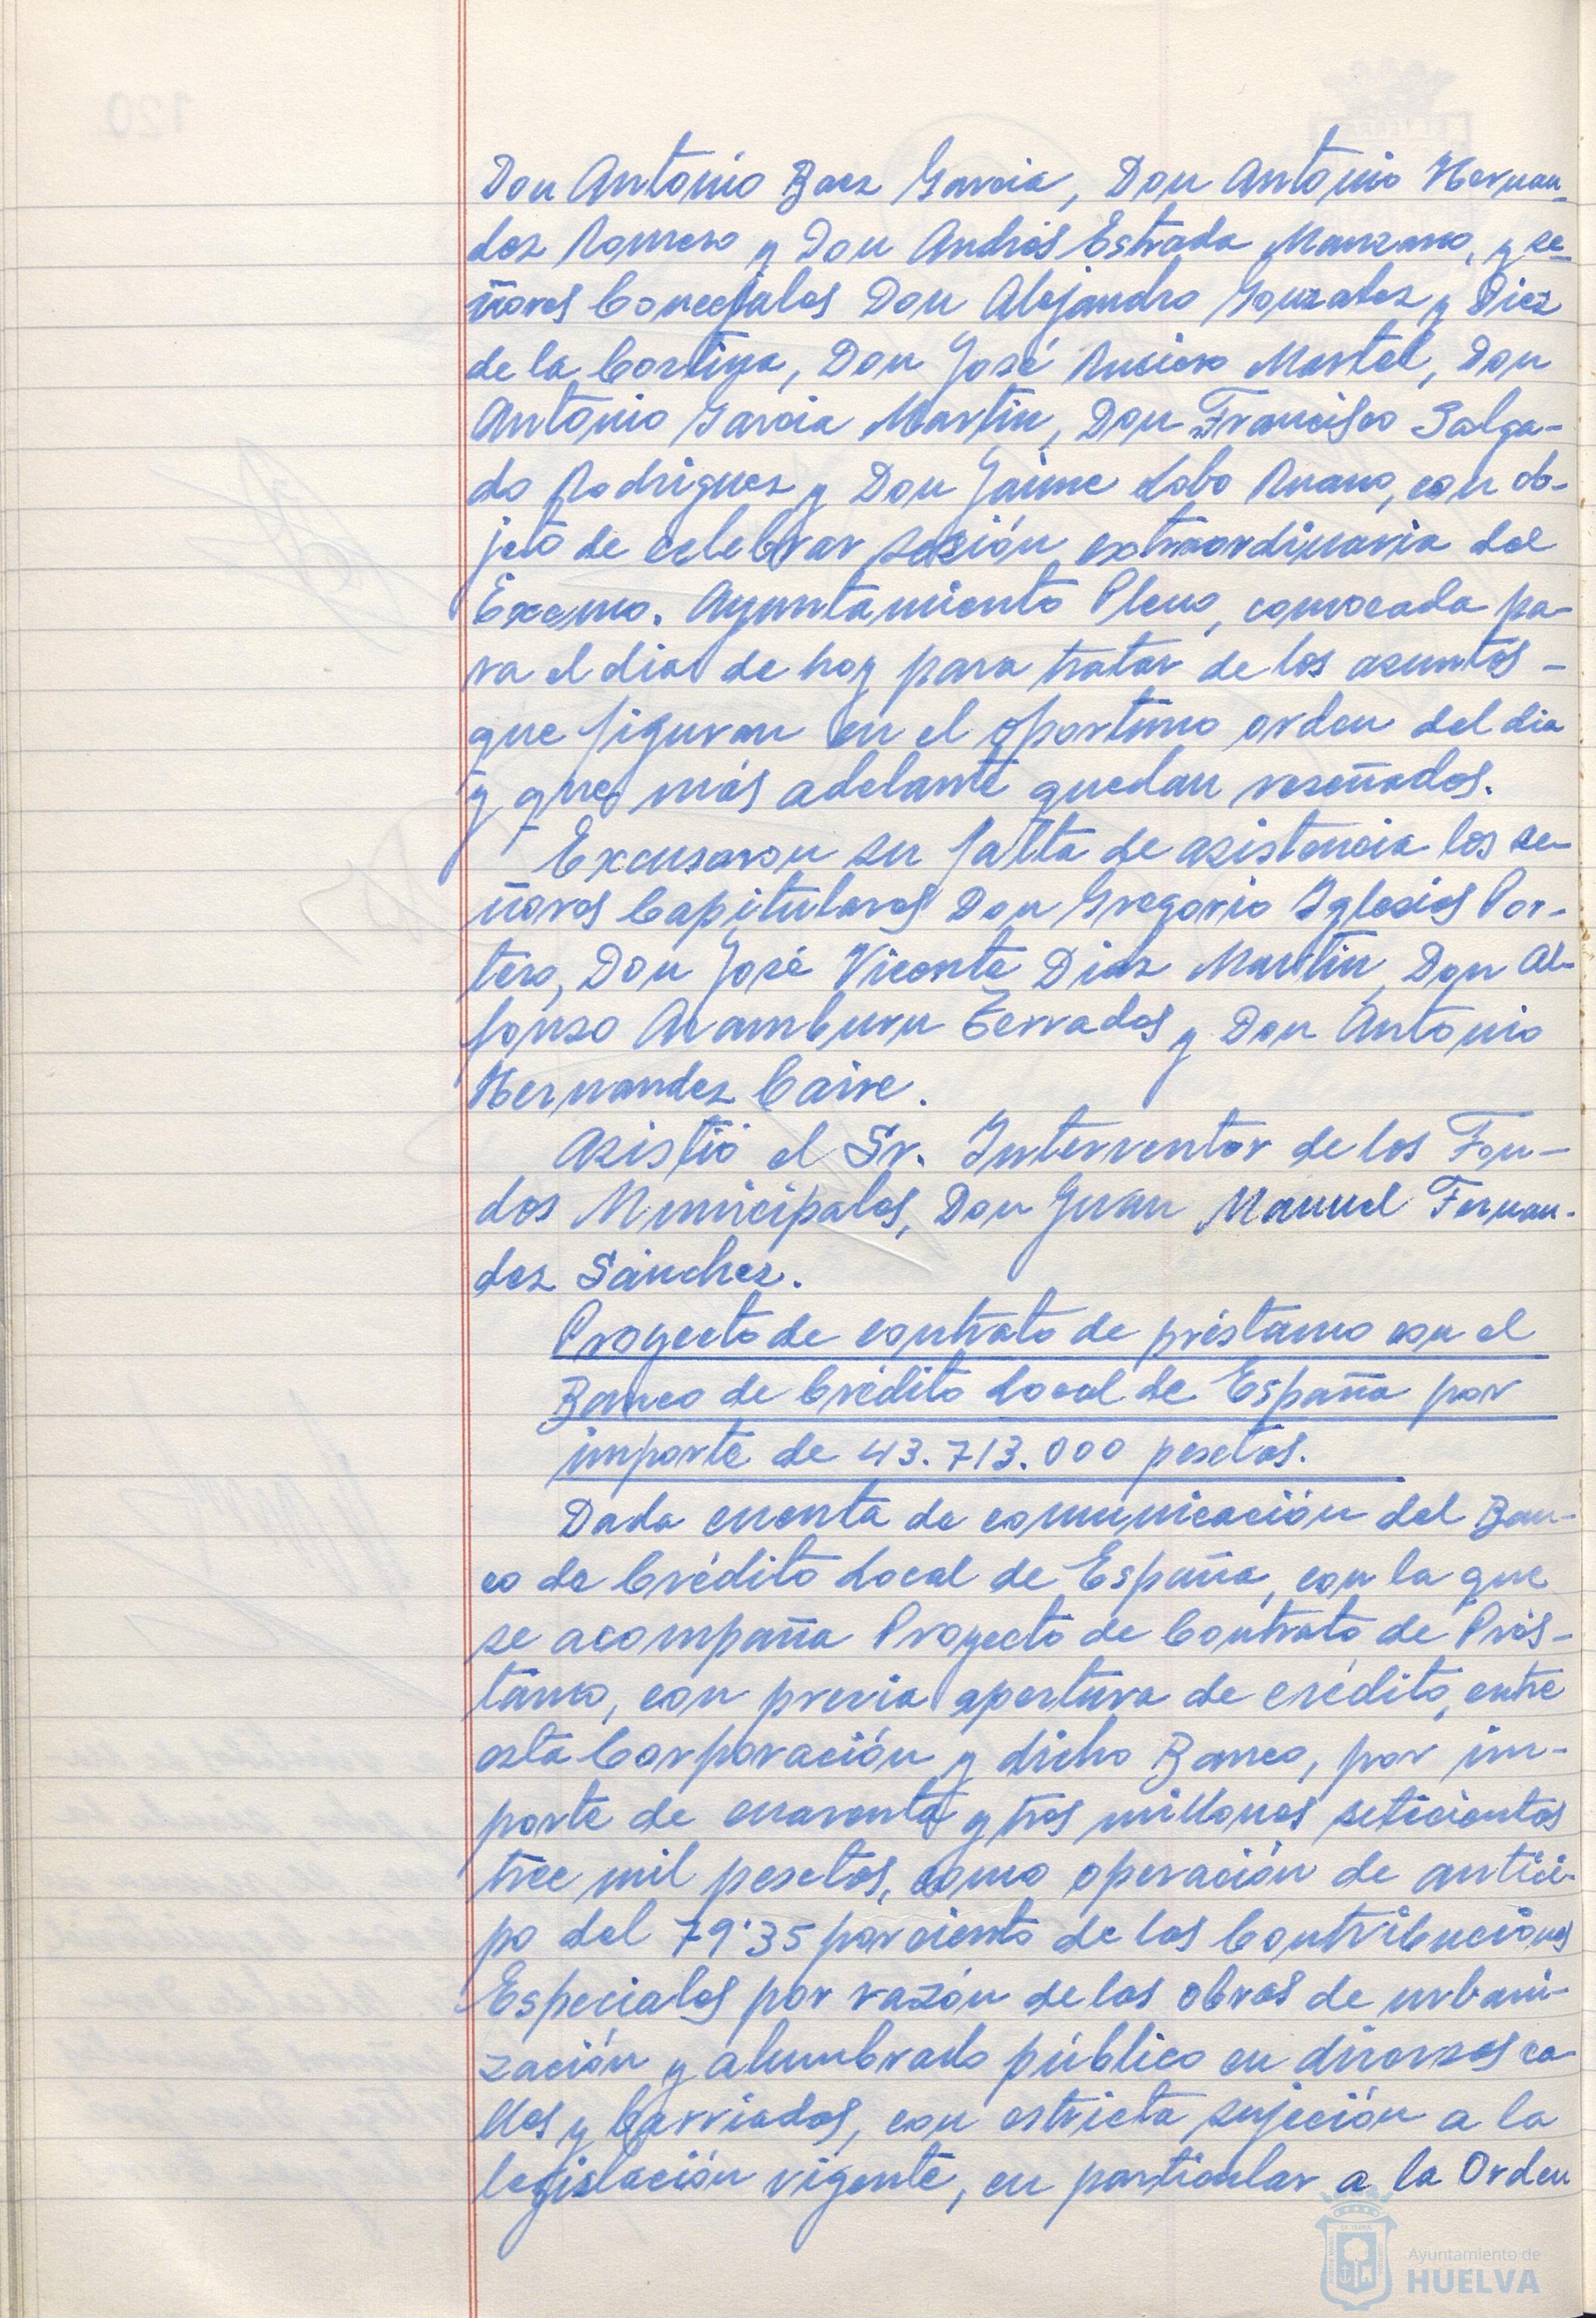 Don Antonio Baez Garcia, Don Antonio Hernan-
dez Romero y Don Andrés Estrada Manzano, y se-
ñores Concejales Don Alejandro Gonzalez y Diez
de la Cortina, Don José Anciero Martel, Don
Antonio Garcia Martin, Don Francisco Salga-
do Rodriguez y Don Jaime Lobo Ruano, con ob-
jeto de celebrar sesión extraordinaria del
Excmo. Ayuntamiento Pleno, convocada pa-
ra el dia de hoy para tratar de los asuntos -
que figuran en el oportuno orden del dia
y que más adelante quedan reseñados.
Excusaron su falta de asistencia los se-
ñores Capitulares Don Gregorio Iglesias Por-
tero, Don José Vicente Diaz Martin, Don Al-
fonso Aramburu Terrados y Don Antonio
Hernandez Caire.
Asistió el Sr. Interventor de los Fon-
dos Municipales, Don Juan Manuel Fernan-
dez Sánchez.
Proyecto de contrato de préstamo con el
Banco de Crédito Local de España por
importe de 43.713.000 pesetas.
Dada cuenta de comunicación del Ban-
co de Crédito Local de España, con la que
se acompaña Proyecto de Contrato de Prés-
tamo, con previa apertura de crédito, entre
esta Corporación y dicho Banco, por im-
porte de cuarenta y tres millones setecientas
trece mil pesetas, como operación de antici-
po del 79'35 por ciento de las Contribuciones
Especiales por razón de las obras de urbani-
zación y alumbrado público en diversas ca-
lles y barriadas, con estricta sujeción a la
legislación vigente, en particular a la Orden
Ayuntamiento de
HUELVA